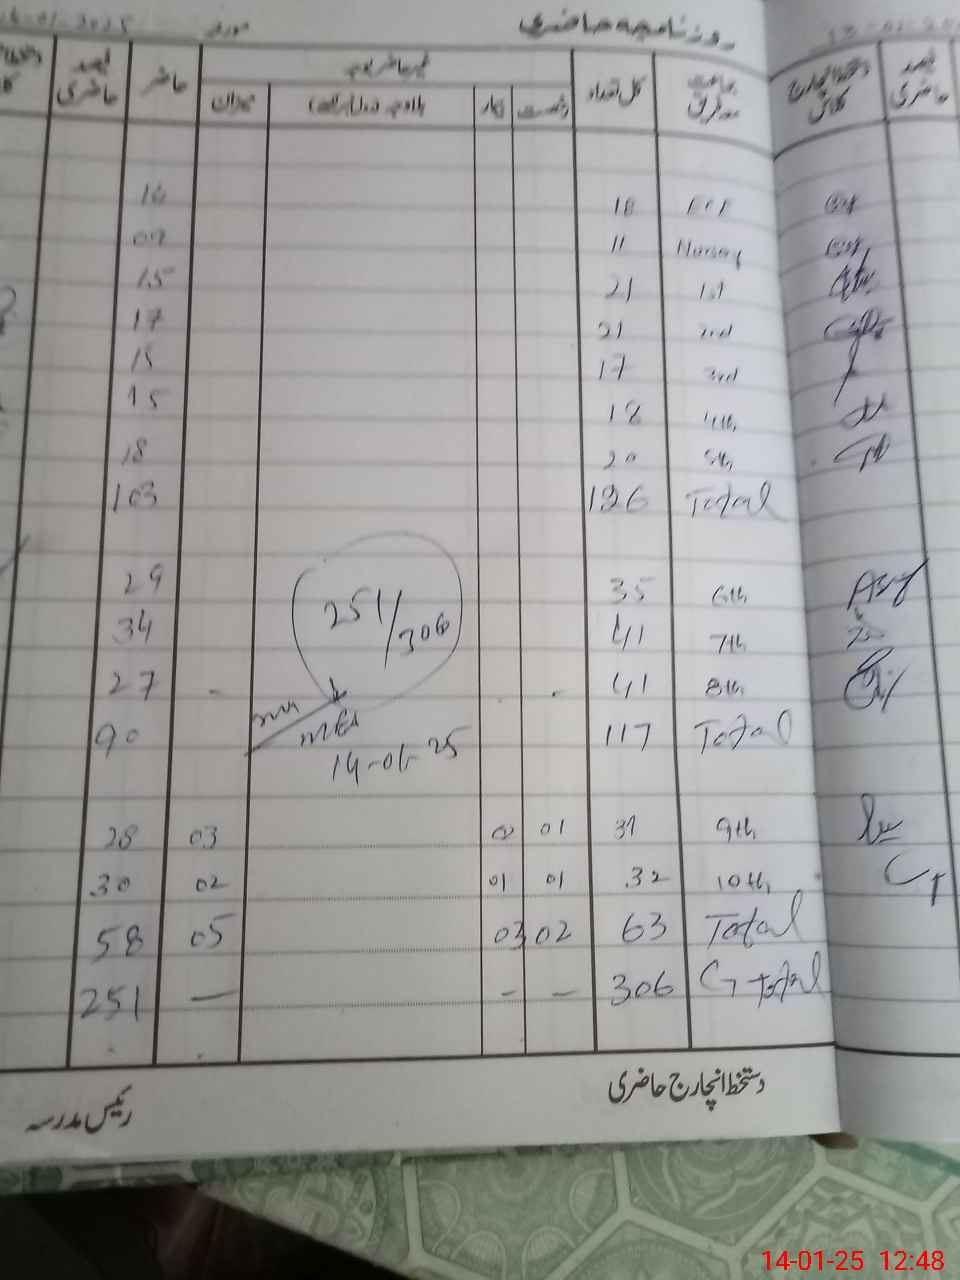 روزنامچہ حاضری
مورخہ
جماعت معہ فریق کل تعداد غیر حاضر بوجہ حاضر فیصد حاضری
رخصت بیمار بلاوجہ میزان
دستخط انچارج کلاس فیصد حاضری
ECE 18 16
Nursery 11 09
1st 21 15
2nd 21 17
3rd 17 15
4th 18 15
5th 20 18
Total 126 103
6th 35 29
251/306
7th 41 34
8th 41 27
Total 117 90
14-01-25
9th 31 01 02 03 28
10th 32 01 01 02 30
Total 63 02 03 05 58
G Total 306 - - - 251
دستخط انچارج حاضری
رئیس مدرسہ
14-01-25 12:48